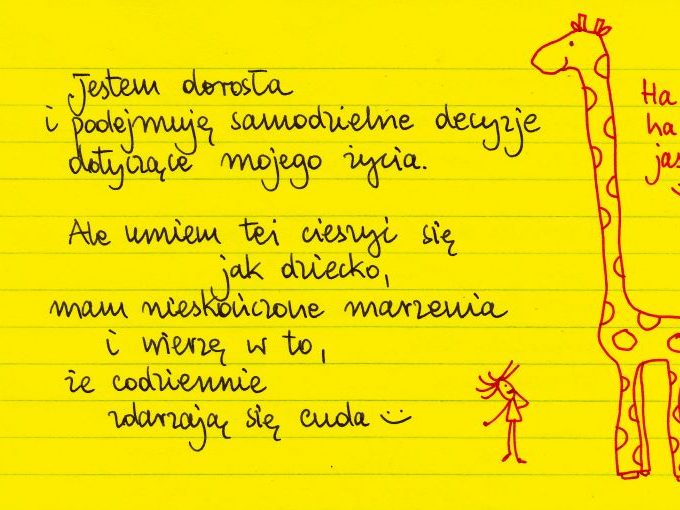 Jestem dorosła
i podejmują samodzielne decyzje
dotyczące mojego życia.
Ale umiem też cieszyć się
jak dziecko,
mam nieskończone marzenia
i wierzę w to,
że codziennie
zdarzają się cuda :)
Ha
ha
jas